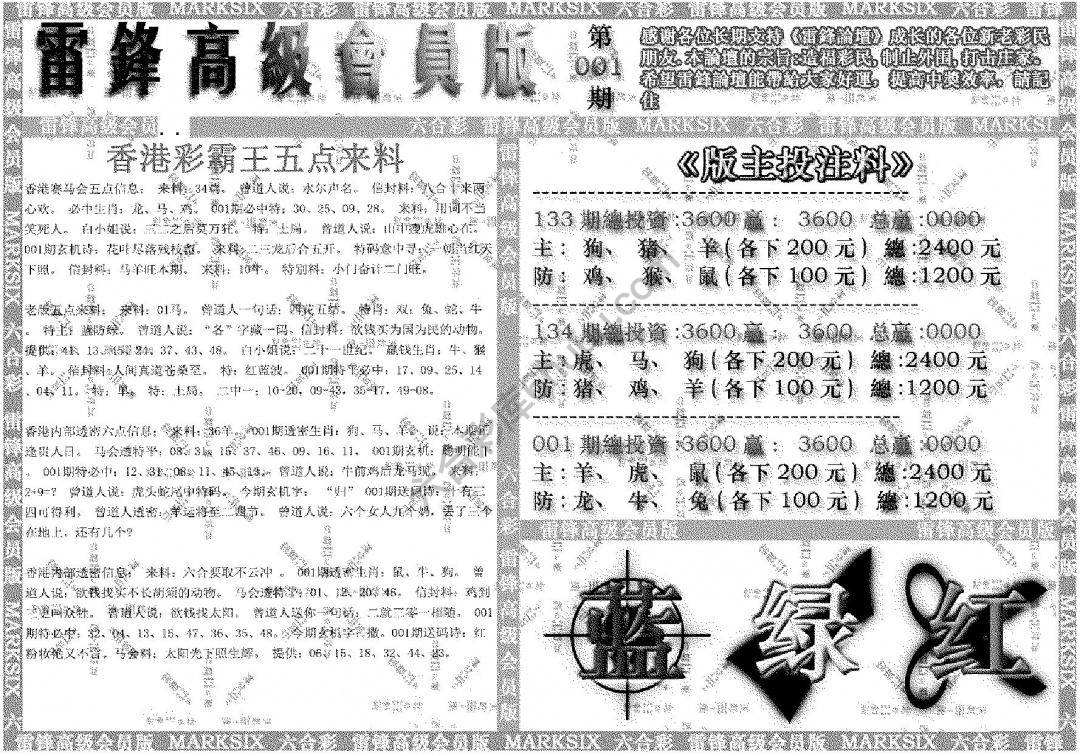 雷鋒高級會員版
第
001
期
感谢各位长期支持《雷鋒論壇》成长的各位新老彩民
朋友.本論壇的宗旨:造福彩民,制止外围,打击庄家。
希望雷鋒論壇能帶給大家好運，提高中獎效率，請記
住
雷锋高级会员 六合彩 雷锋高级会员版 MARKSIX 六合彩 雷锋高级会员版 MARKSIX
香港彩霸王五点来料
香港赛马会五点信息： 来料：34端。 曾道人说：永尔声名。 信封料：八合十来两
心欢。 必中生肖：龙、马、鸡。 001期必中特：30、25、09、28。 来料：用词不当
笑死人。 白小姐说：三二之后莫万死。 特：土局。 曾道人说：山中遇虎雄心在。
001期玄机诗：花叶尽落残枝露。 来料：二三龙后合五开。 特码意中寻：一朝当红天
下照。 信封料：马羊旺本期。 来料：10年。 特别料：小门奋计二门旺。
老版五点来料： 来料：01马。 曾道人一句话：四花五结。 特肖：双：兔、蛇、牛
。 特上：蓝防绿。 曾道人说：“名”字藏一码。信封料：欲钱买为国为民的动物。
提供：41、13、45、24、37、43、48。 白小姐说：二十一世纪。 赢钱生肖：牛、猴
、羊。 信封料：人间真道苍桑至。 特：红蓝波。 001期特平必中：17、09、25、14
、04、11。 特：单。 特：土局。 二中一：10-20，09-43，35-47，49-08。
香港内部透密六点信息： 来料：36羊。 001期透密生肖：狗、马、羊。 说：本期正
逢贵人日。 马会透特平：08、31、15、37、46、09、16、11。 001期玄机：聪明能干
。 001期特必中：12、31、08、11、45、13。 曾道人说：牛前鸡后龙马现。 来料：
2+9=？ 曾道人说：虎头蛇尾中特码。 今期玄机字： “归” 001期送码诗：十有三
四可得利。 曾道人透密：羊运将至二调节。 曾道人说：六个女人九个奶，丢了三个
在地上，还有几个?
香港内部透密信息： 来料：六合要取不云冲 。 001期透密生肖：鼠、牛、狗。 曾
道人说：欲钱找买不长胡须的动物。 马会透特平：01、12、20、46。 信封料：鸡到
三更叫众牲。 曾道人说：欲钱找太阳。 曾道人送你一句话：二就三零一相随。 001
期特必中：32、04、13、15、47、36、35、48。 今期玄机字：撒。001期送码诗：红
粉妆艳又不言。马会料：太阳光下照生辉。 提供：06、15、18、32、44、23。
《版主投注料》
133 期總投資:3600 赢： 3600 总赢:0000
主：狗、 猪、 羊(各下 200 元) 總:2400 元
防：鸡、 猴、 鼠(各下 100 元) 總:1200 元
134 期總投資:3600 赢： 3600 总赢:0000
主：虎、 马、 狗(各下 200 元) 總:2400 元
防：猪、 鸡、 羊(各下 100 元) 總:1200 元
001 期總投資:3600 赢： 3600 总赢:0000
主：羊、 虎、 鼠(各下 200 元) 總:2400 元
防：龙、 牛、 兔(各下 100 元) 總:1200 元
雷锋高级会员版 雷锋高级会员版
蓝 绿 红
雷锋高级会员版 MARKSIX 六合彩 雷锋高级会员版 MARKSIX 六合彩 雷锋高级会员版 MARKSIX 六合彩 雷锋高级会员版